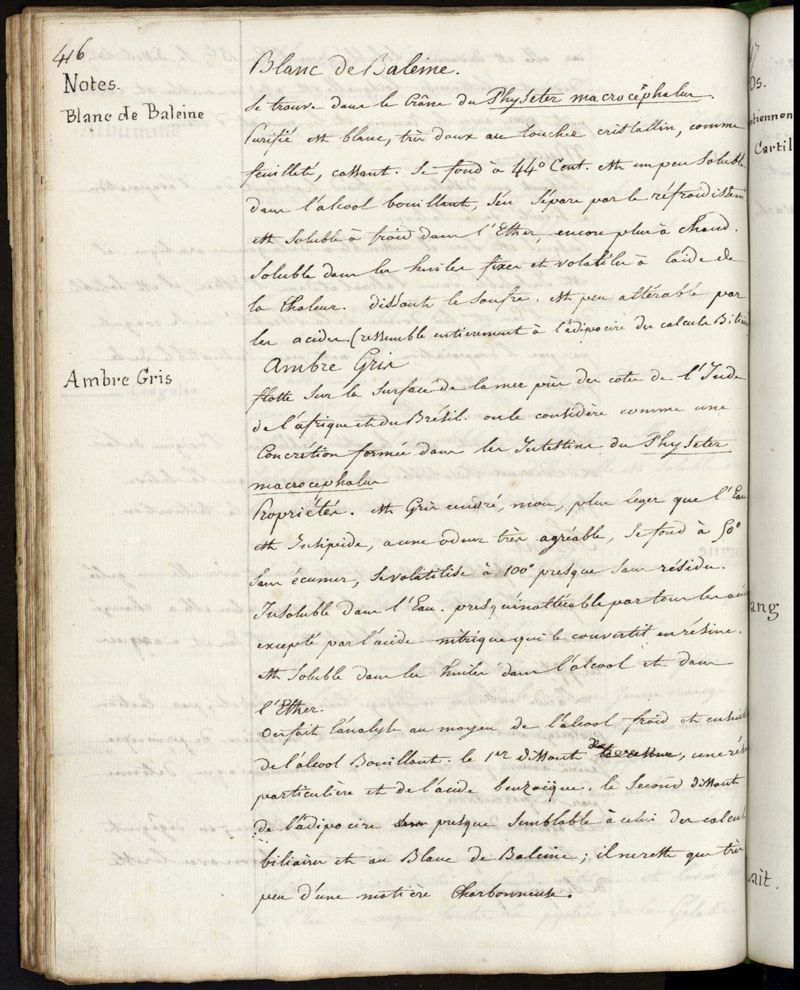 416
Notes.
Blanc de Baleine
Blanc de Baleine.
Se trouve dans le Crâne du Physeter macrocéphalus.
Purifié est blanc, très doux au toucher cristallin, comme
feuilleté, cassant. Se fond à 44° Cent. est un peu soluble
dans l'alcool bouillant, s'en sépare par le réfroidissem
est soluble à froid dans l'Ether, encore plus à chaud.
Soluble dans les huiles fixes et volatiles à l'aide de
la Chaleur. dissout le soufre. est peu altérable par
les acides. (ressemble entierement à l'adipocire des calculs Bili
Ambre Gris
Ambre Gris
flotte sur la surface de la mer près des cotes de l'Inde
de l'afrique et du Brésil. on le considère comme une
Concrétion formée dans les Intestins du Physeter
macrocephalus
Propriétés. est Gris cendré, mou, plus leger que l'Eau
est Insipide, a une odeur très agréable, se fond à 50°
sans écumer, se volatilise à 100° presque sans résidu.
Insoluble dans l'Eau. presqu'inaltérable par tous les
excepté par l'acide nitrique qui le convertit en résine.
est soluble dans les huiles dans l'alcool et dans
l'Ether.
On fait l'analyse au moyen de l'alcool froid et ensuite
de l'alcool Bouillant. le 1er dissout une rés
particulière et de l'acide benzoïque. le second dissout
de l'adipocire presque semblable à celui des calculs
biliaires et au Blanc de Baleine; il ne reste que très
peu d'une matière Charbonneuse.
Os.
Cartil
ang
ait.